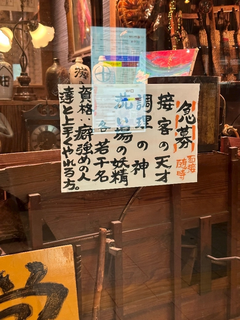 急募
百福
随時
接客の天才
調理の神
洗い場の妖精
各若干名
資格・癖強めの人
達と上手くやれる方。